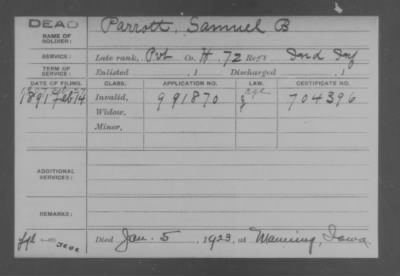 DEAD
NAME OF SOLDIER: Parrott, Samuel B
SERVICE: Late rank, Pvt Co. H. 72 Reg't Ind Inf
TERM OF SERVICE: Enlisted , 1 Discharged , 1
DATE OF FILING. CLASS. APPLICATION NO. LAW. CERTIFICATE NO.
1891 Feb 14 Invalid, 991870 704396
Widow,
Minor,
ADDITIONAL SERVICES:
REMARKS:
Died Jan. 5, 1923, at Manning, Iowa